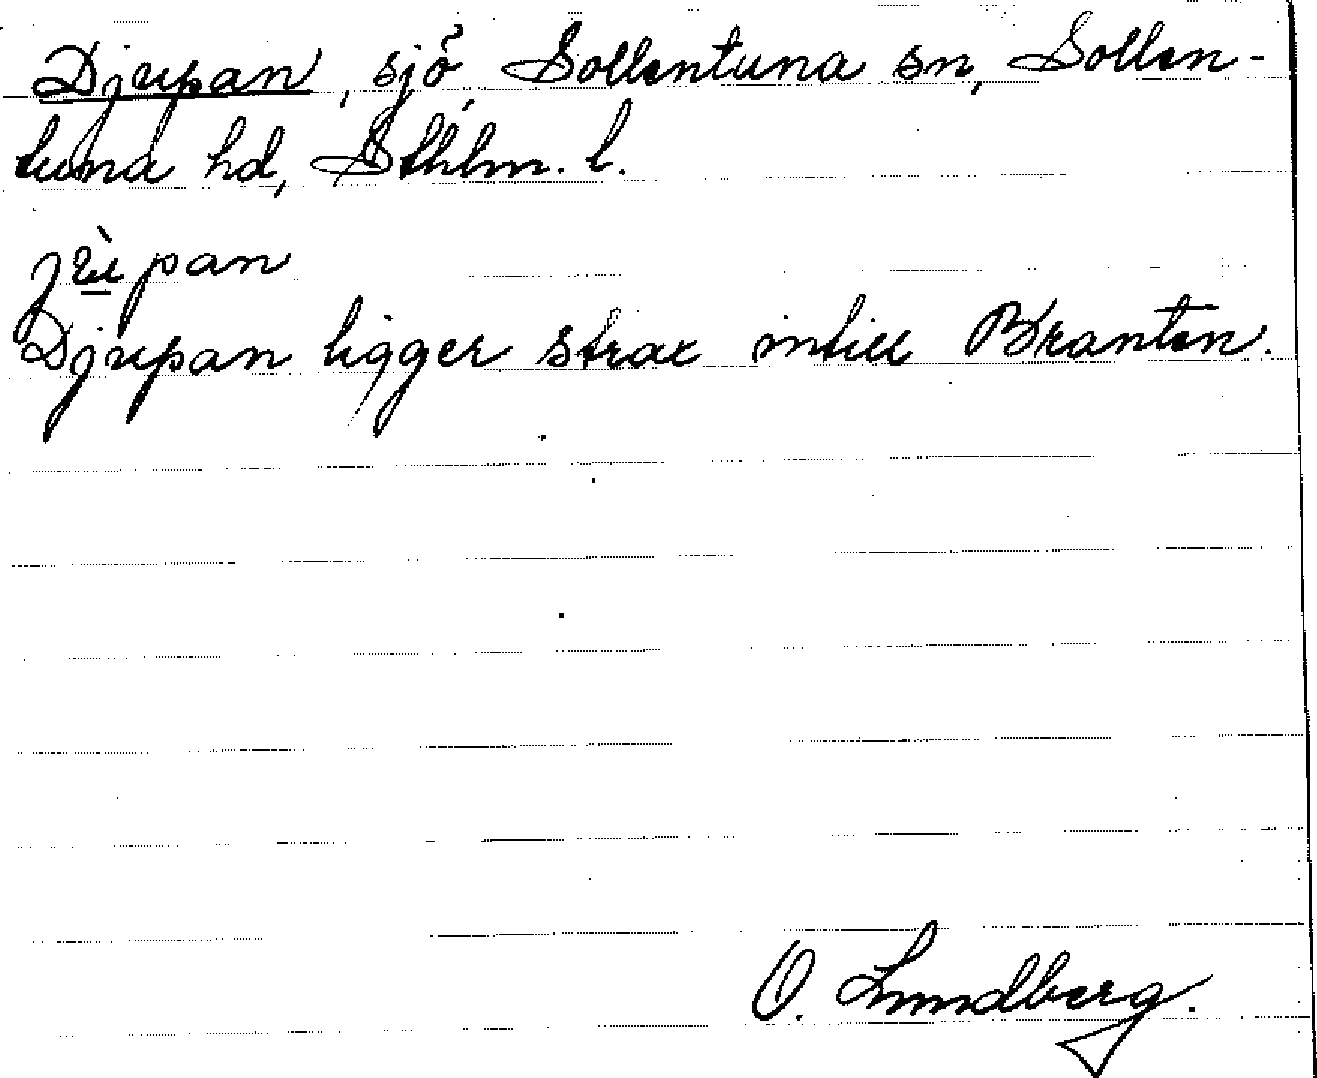 Djupan, sjö Sollentuna sn, Sollen-
tuna hd, Sthlm. l.
jùpan
Djupan ligger strax intill Branten.
O. Lundberg.